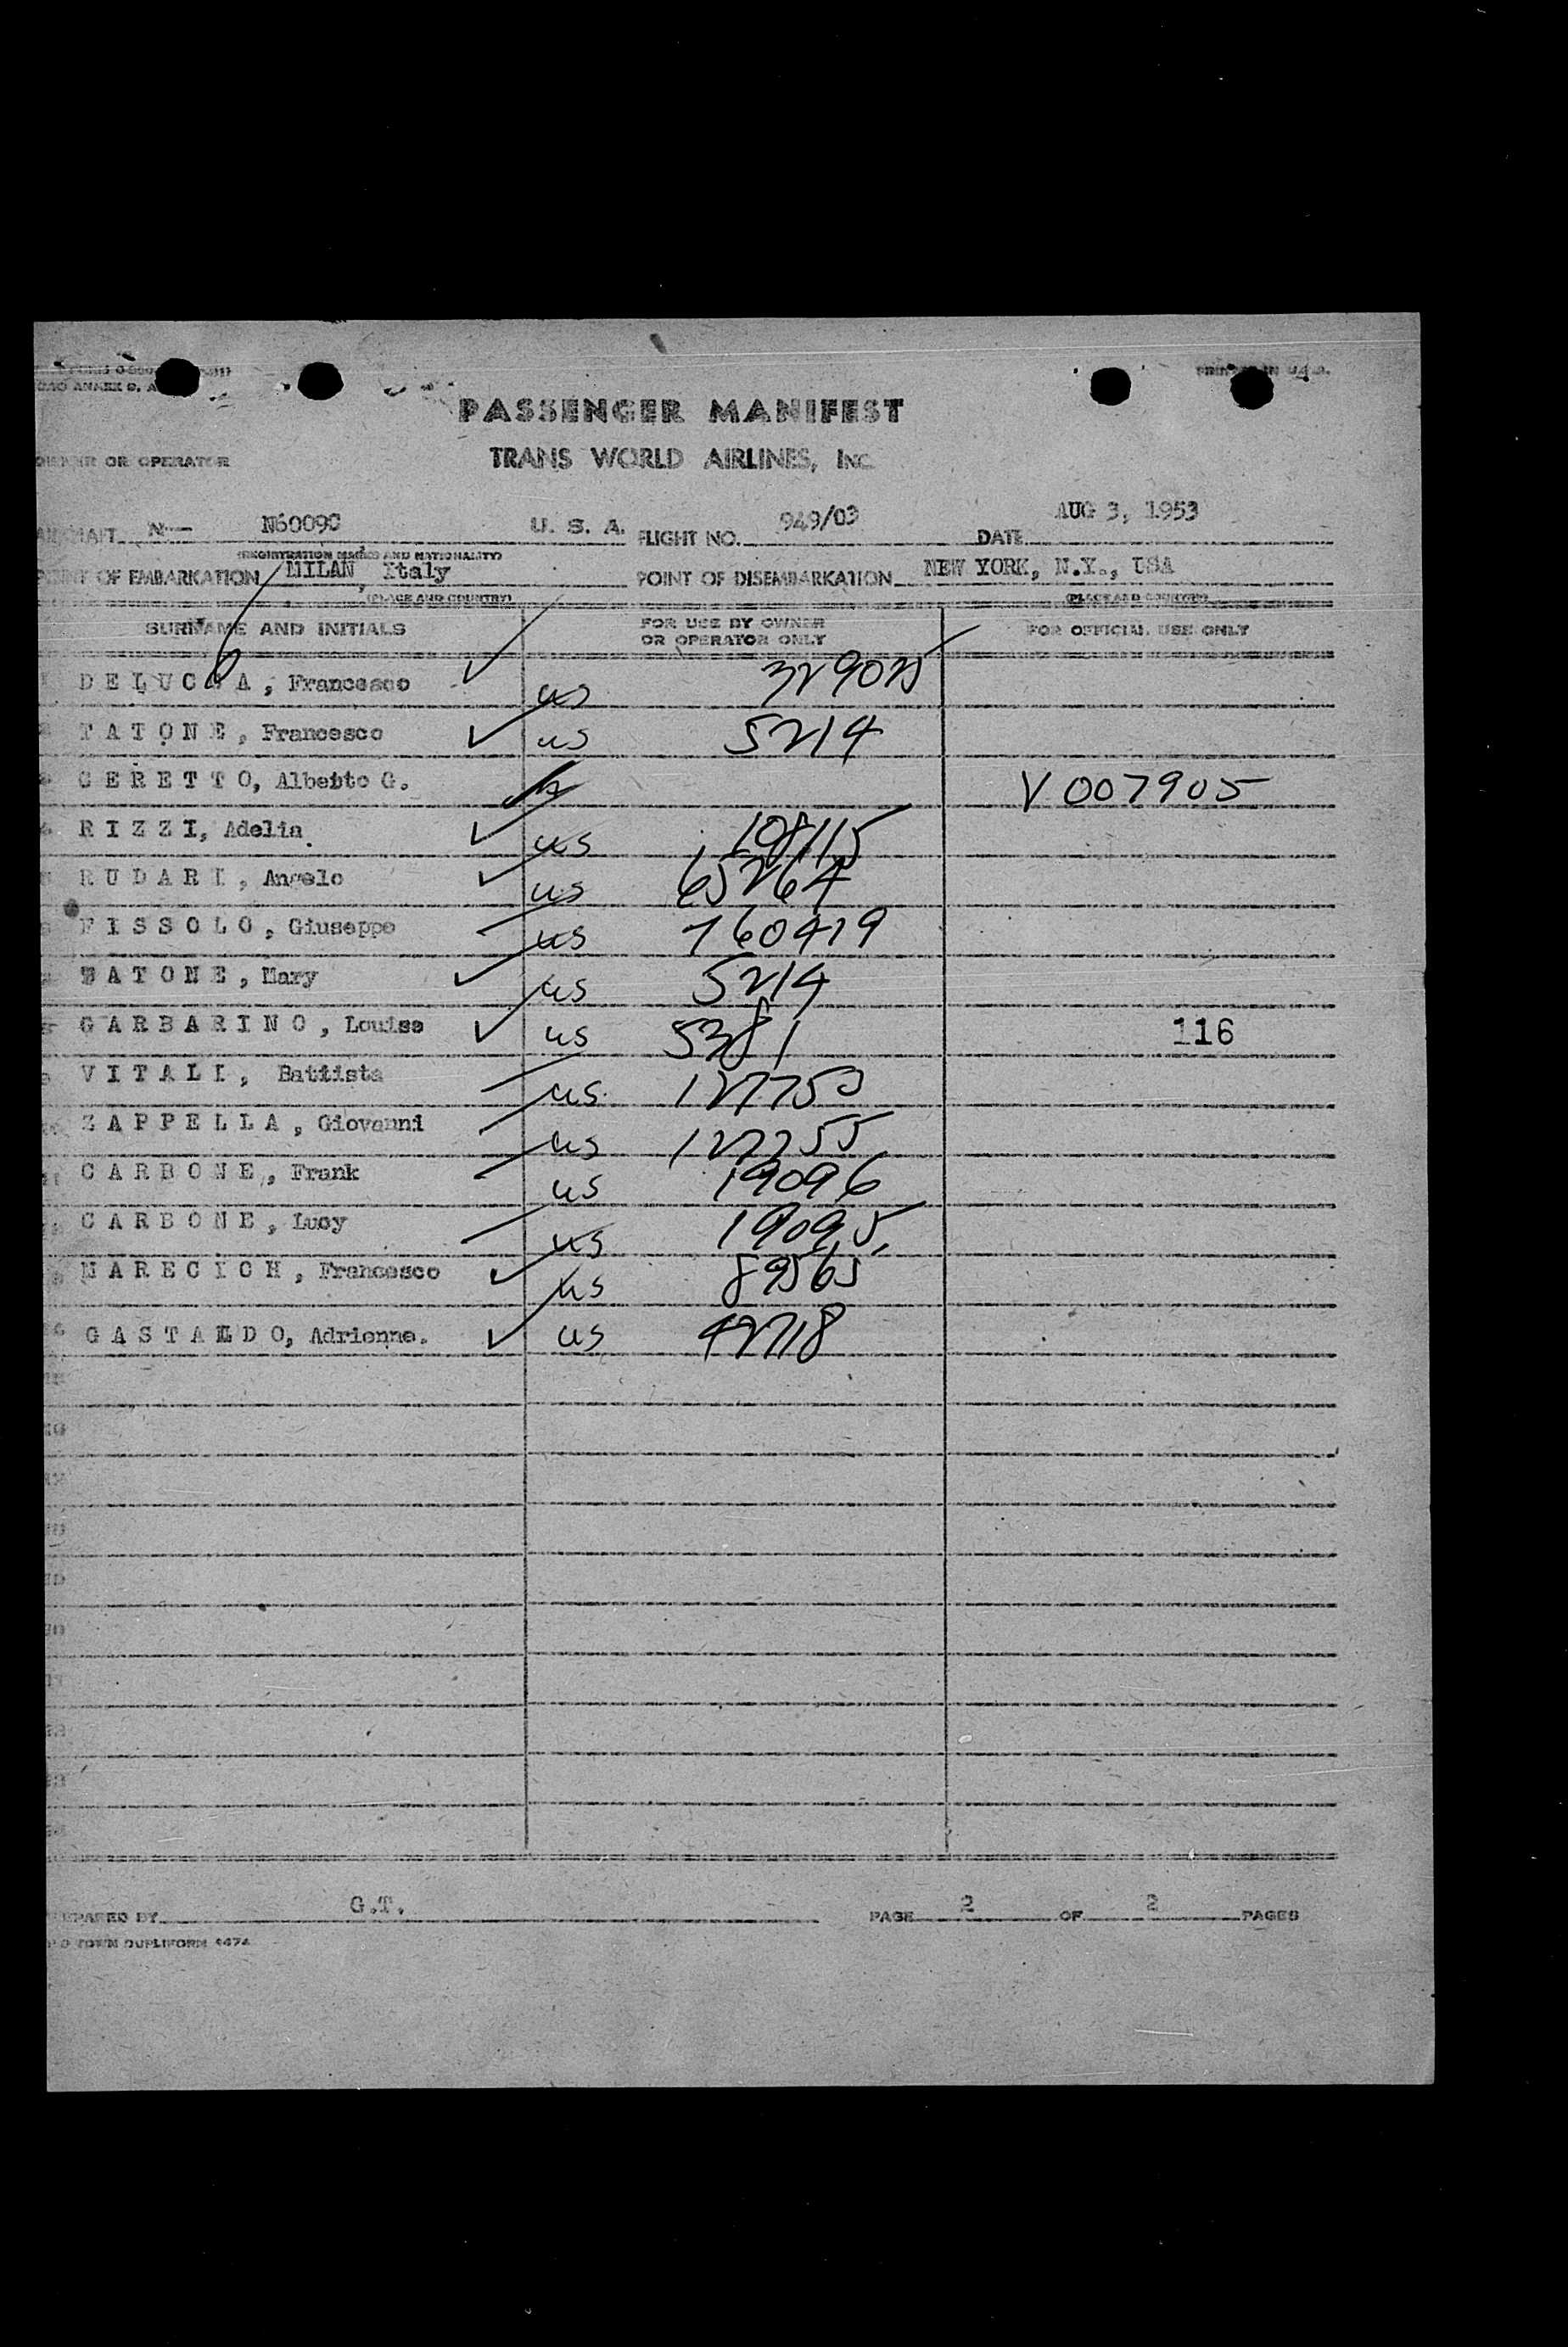 PRINTED IN U.S.A.
ICAO ANNEX 9, A
PASSENGER MANIFEST
OWNER OR OPERATOR TRANS WORLD AIRLINES, INC.
AIRCRAFT N— N6009C U. S. A. FLIGHT NO. 949/03 DATE AUG 3, 1953
(REGISTRATION MARKS AND NATIONALITY)
POINT OF EMBARKATION MILAN, Italy POINT OF DISEMBARKATION NEW YORK, N.Y., USA
(PLACE AND COUNTRY) (PLACE AND COUNTRY)
SURNAME AND INITIALS FOR USE BY OWNER OR OPERATOR ONLY FOR OFFICIAL USE ONLY
DELUCCA, Francesco us 329025
TATONE, Francesco us 5214
CERETTO, Alberto G. V 007905
RIZZI, Adelia us 108115
RUDARI, Angelo us 65264
FISSOLO, Giuseppe us 160419
TATONE, Mary us 5214
GARBARINO, Louise us 5381 116
VITALI, Battista us 127750
ZAPPELLA, Giovanni us 127755
CARBONE, Frank us 19096
CARBONE, Lucy us 19095
MARECICH, Francesco us 89565
GASTALDO, Adrienne. us 42718
PREPARED BY G.T. PAGE 2 OF 2 PAGES
OLD TOWN DUPLIFORM 4474